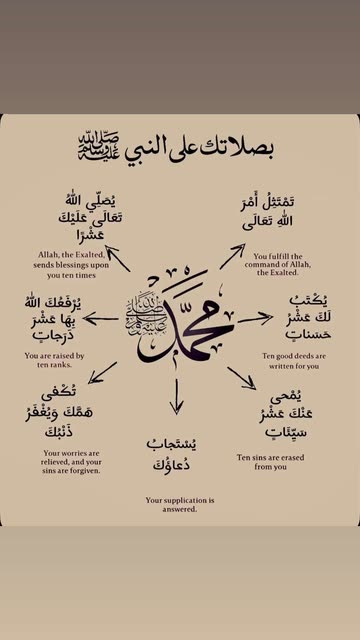 بصلاتك على النبي ﷺ
تَمْتَثِلُ أَمْرَ
اللهِ تَعَالَى
You fulfill the
command of Allah,
the Exalted.
يُصَلِّي اللهُ
تَعَالَى عَلَيْكَ
عَشْرًا
Allah, the Exalted,
sends blessings upon
you ten times
محمد ﷺ
يُكْتَبُ
لَكَ عَشْرُ
حَسَنَاتٍ
Ten good deeds are
written for you
يُرْفَعُكَ اللهُ
بِهَا عَشْرَ
دَرَجاتٍ
You are raised by
ten ranks.
يُمْحى
عَنْكَ عَشْرُ
سَيِّئَاتٍ
Ten sins are erased
from you
تُكْفى
هَمَّكَ وَيُغْفَرُ
ذَنْبُكَ
Your worries are
relieved, and your
sins are forgiven.
يُسْتَجابُ
دُعاؤُكَ
Your supplication is
answered.